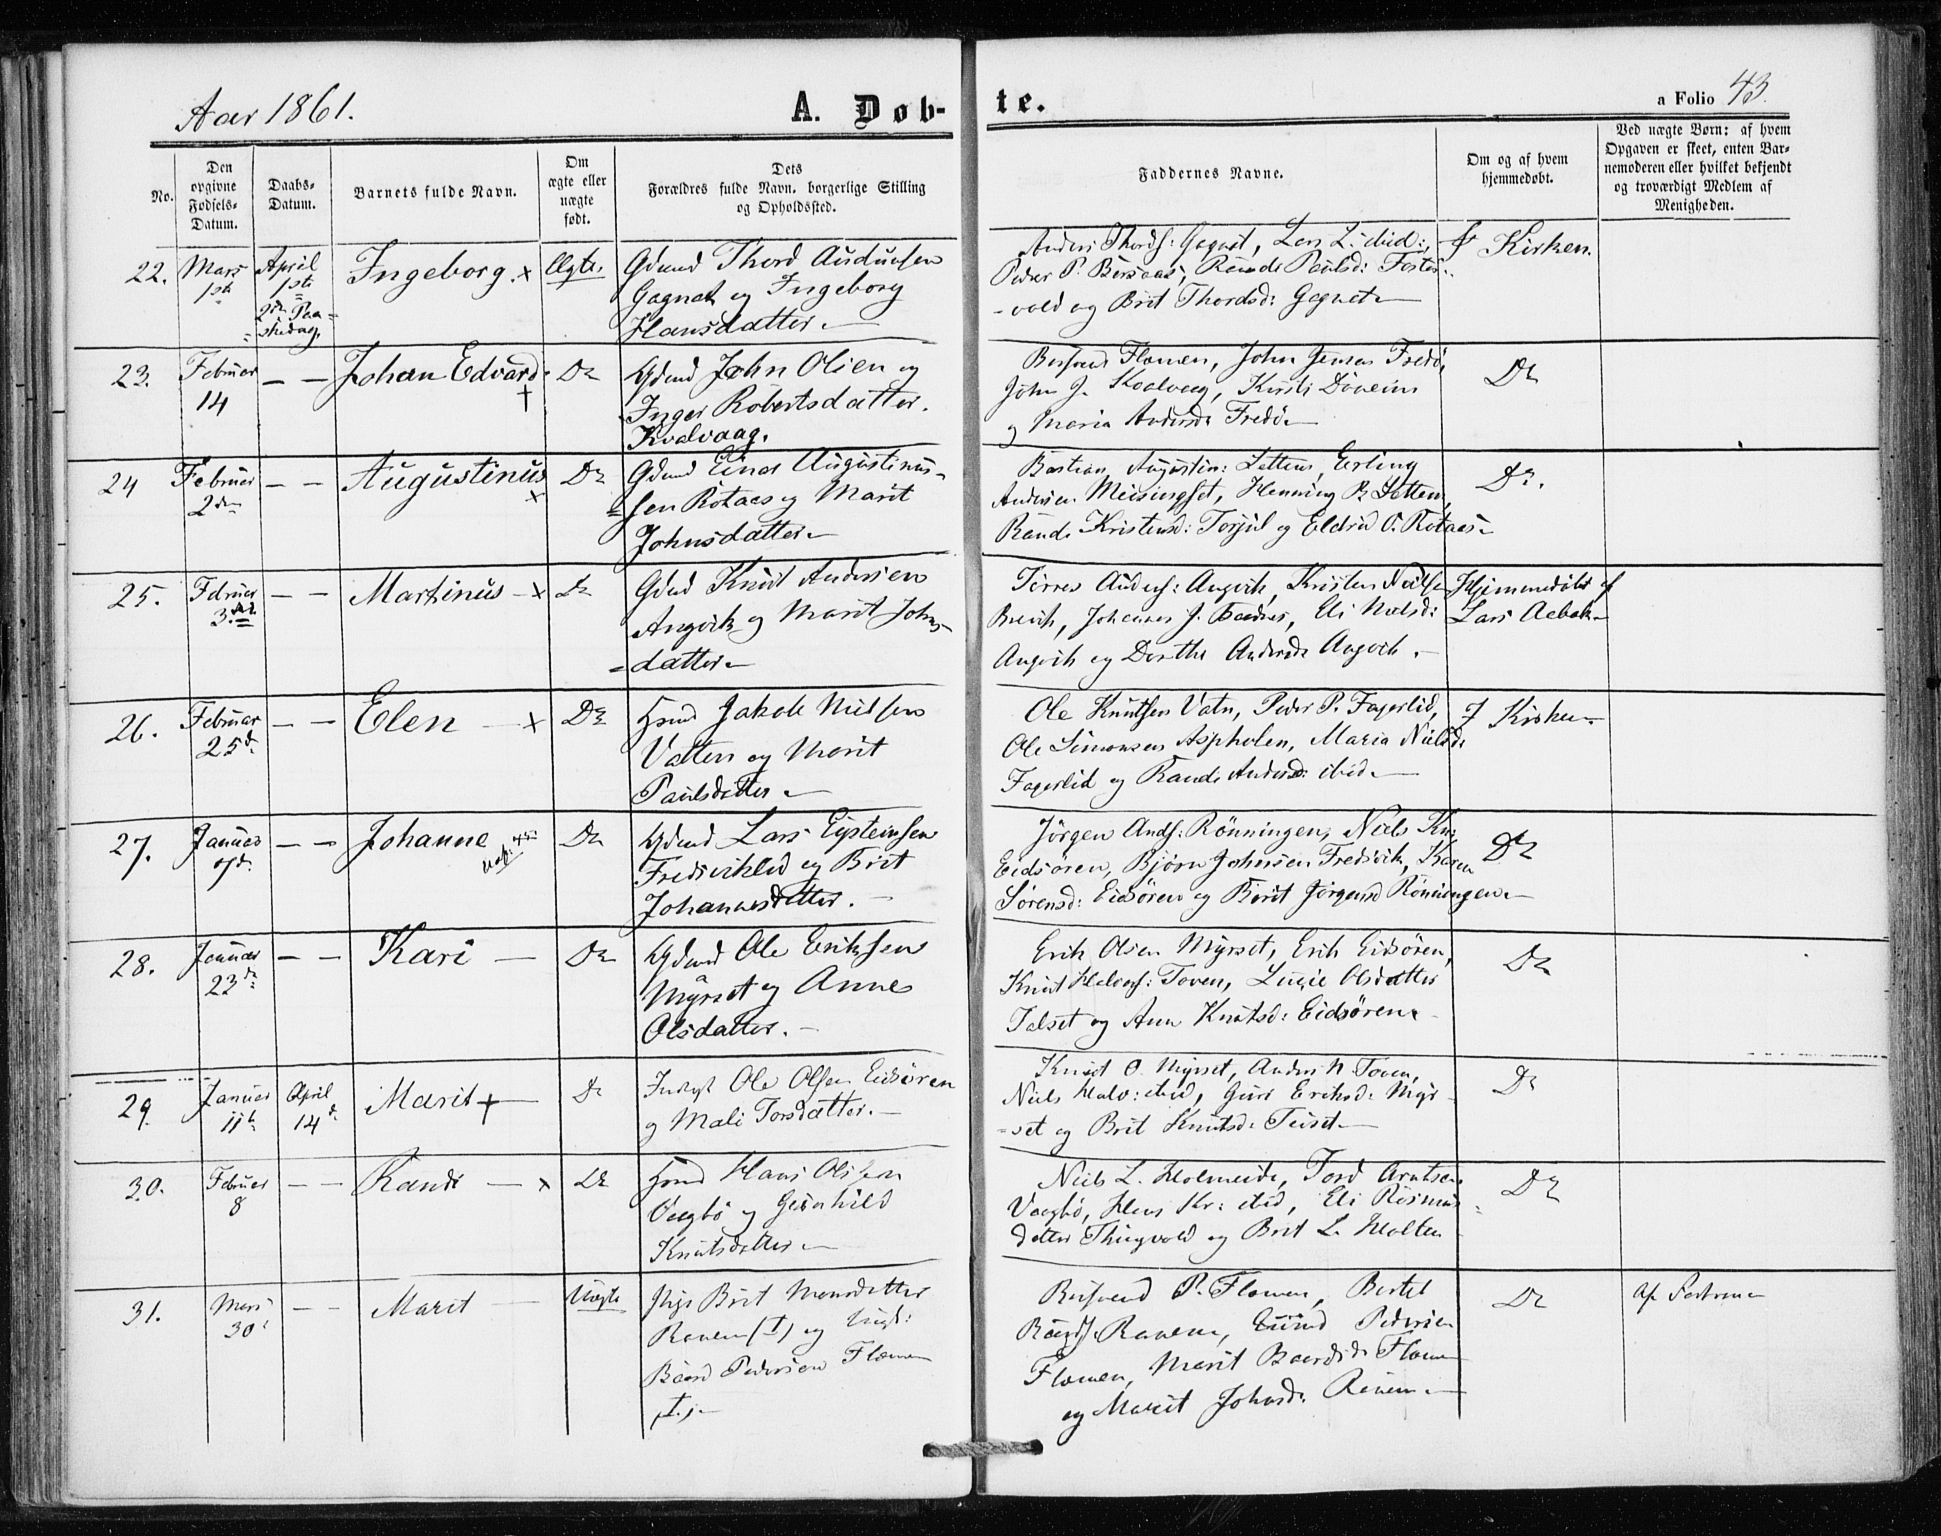 Aar 1861.
A. Døb-
te.
a Folio 43.
No.
Den opgivne Fødsels-Datum.
Daabs-Datum.
Barnets fulde Navn.
Om ægte eller uægte født.
Dets Forældres fulde Navn, borgerlige Stilling og Opholdssted.
Faddernes Navne.
Om og af hvem hjemmedøbt.
Ved uægte Børn: af hvem Opgaven er skeet, enten Barnemoderen eller hvilket bekjendt og troværdigt Medlem af Menigheden.
22. Mars 1ste
April 1ste
2den Paa=
=skedag.
Ingeborg. x
Ægte.
Gdmd Thord Audunsen
Gagnat og Ingeborg
Hansdatter.
Anders Thords: Gagnat, Lars L. ibid:,
Peder P. Bersaas, Rande Paulsd: Foster-
-vold og Brit Thordsd: Gagnet
I Kirken.
23. Februar 14
— —
Johan Edvard. †
Do
Gdmd John Olsen og
Inger Robertsdatter.
Kvalvaag.
Flemen, John Jensen Fredø,
John J. Kvalvaag, Kirsti
og Maria Andersd: Fredø
Do
24 Februar 2den
— —
Augustinus x
Do
Gdmd Einar Augustinus-
=sen Rotaas og Marit
Johnsdatter
Bastian Augustin: Settem, Erling
Andersen Meisingset, Henning B. Settem,
Rande Kristensd: Torjul og Eldrid O. Rotaas
Do.
25. Februar 3die
— —
Martinus — x
Do
Gdmd Knut Andersen
Angvik og Marit Johns-
=datter
Torres Anders: Angvik, Kristen Nielsen
Brevik, Johannes J. Eli Nielsd:
Angvik og Dorthe Andersd: Angvik.
Hjemmedøbt af
Lars Aebak
26. Februar 25d.
— —
Elen — x
Do
Hsmd Jakob Nielsen
Vatten og Marit
Paulsdatter
Ole Knutsen Vatn, Peder P. Fagerlid,
Ole Simonsen Aspholen, Maria Nielsd:
Fagerlid og Rande Andersd: ibid.
I Kirken
27. Januar 7d.
— —
Johanne
Do
Gdmd Lars Eysteinsen
Fredsviklid og Brit
Johannesdatter.
Jørgen Ands: Rønningen, Niels Kn.
Eidsøren, Bjørn Johnsen Fredsvik, Karen
Sørensd: Eidsøren og Berit Jørgensd Rønningen
Do
28. Januar 23d.
— —
Kari —
Do
Gdmd Ole Eriksen
Myrset og Anne
Olsdatter.
Erik Olsen Myrset, Erik Eidsøren,
Knut Halvors: Toven, Lucie Olsdatter
Talset og Ann Knutsd: Eidsøren
Do
29. Januar 11te
April 14d.
Marit x
Do
Inderst Ole Olsen Eidsøren
og Mali Torsdatter.
Knut O. Myrset, Anders N Toven,
Niels Halv: ibid, Guri Eriksd: Myr-
-set og Brit Knutsd: Teiset
Do
30. Februar 8
— —
Rande — x
Do
Hsmd Hans Olsen
Vaagbø og Gunhild
Knutsdatter
Niels L. Holmeide, Tord Arntsen
Vaagbø, Hans Kr: ibid, Eli Rasmus-
datter Thingvold og Brit L. Holten
Do
31. Mars 30te
— —
Marit —
Uægte
Pige Brit Monsdatter
Ranem (I) og Ungk:
Baard Pedersen Flemmen
(I.)
P. Flemen, Bertel
Baards: Ranem, Eivind Pedersen
Flemen, Marit Baardsd: Flemen
og Marit Johnsd: Ranem
Do
Af Faderen